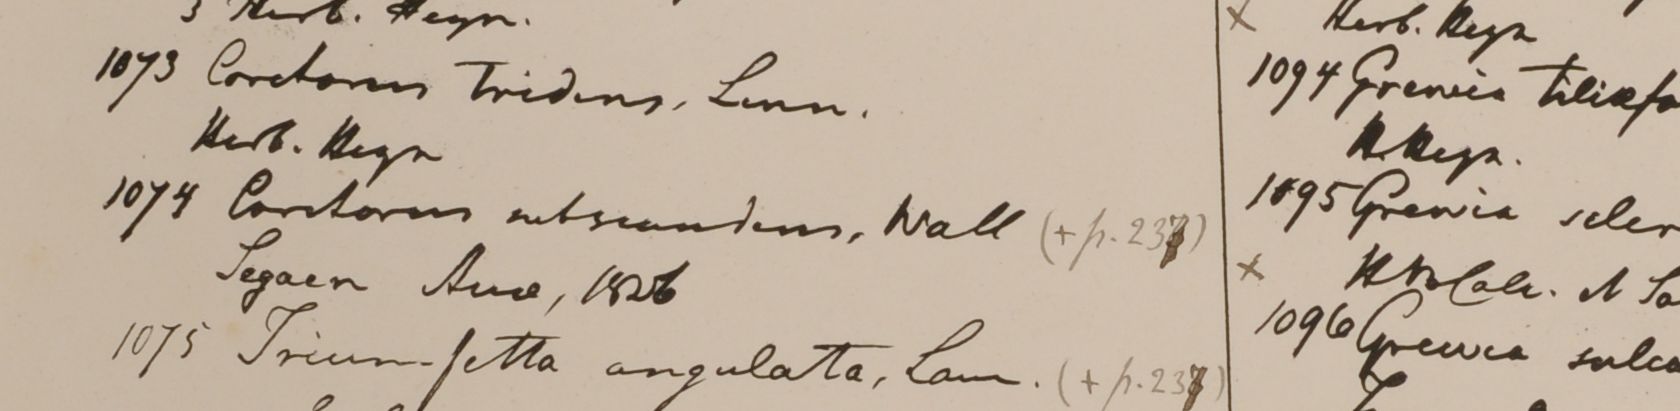 3 Herb. Heyn.
1073 Corchorus tridens, Linn.
Herb. Heyn
1074 Corchorus subscandens, Wall (+ p. 237)
Segaen Ava, 1826
1075 Triumfetta angulata, Lam. (+ p. 237)
× Herb. Heyn
1094 Grewia tiliæfo
H. Heyn.
1095 Grewia scler
× H. B. Calc. et
1096 Grewia sulca